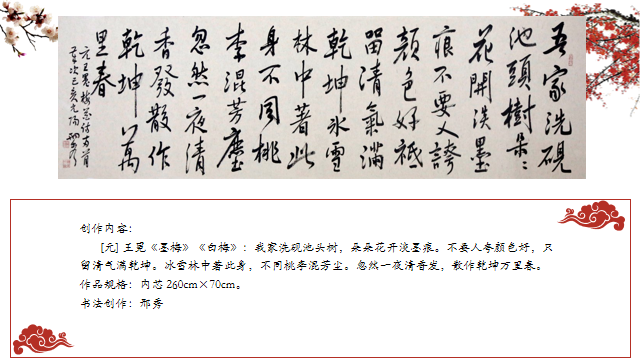 吾家洗硯
池頭樹朵々
花開淡墨
痕不要人誇
顏色好祗
留清氣滿
乾坤冰雪
林中著此
身不同桃
李混芳塵
忽然一夜清
香發散作
乾坤萬
里春
创作内容：
[元] 王冕《墨梅》《白梅》：我家洗砚池头树，朵朵花开淡墨痕。不要人夸颜色好，只
留清气满乾坤。冰雪林中著此身，不同桃李混芳尘。忽然一夜清香发，散作乾坤万里春。
作品规格：内芯 260cm×70cm。
书法创作：邢秀